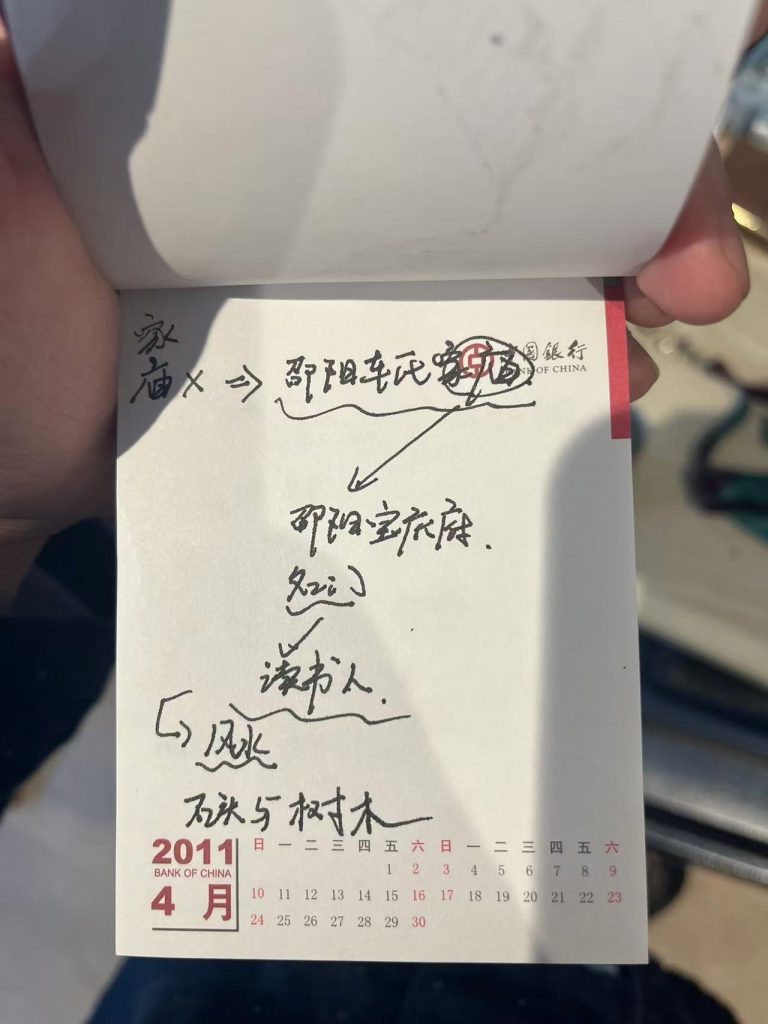 家庙 × ⇒ 邵阳车氏家庙.
中国銀行
BANK OF CHINA
邵阳宝庆府.
名门
读书人.
风水
石头与树木
2011
BANK OF CHINA
4 月
日 一 二 三 四 五 六 日 一 二 三 四 五 六
1 2 3 4 5 6 7 8 9
10 11 12 13 14 15 16 17 18 19 20 21 22 23
24 25 26 27 28 29 30